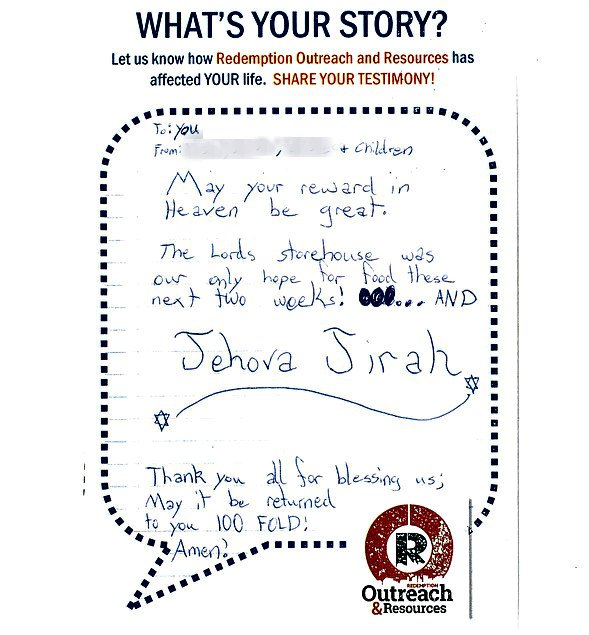 WHAT'S YOUR STORY?
Let us know how Redemption Outreach and Resources has
affected YOUR life. SHARE YOUR TESTIMONY!
To: You
From: , + Children
May your reward in
Heaven be great.
The Lords storehouse was
our only hope for food these
next two weeks! ... AND
Jehova Jirah
Thank you all for blessing us;
May it be returned
to you 100 FOLD!
Amen!
R
REDEMPTION
Outreach
& Resources